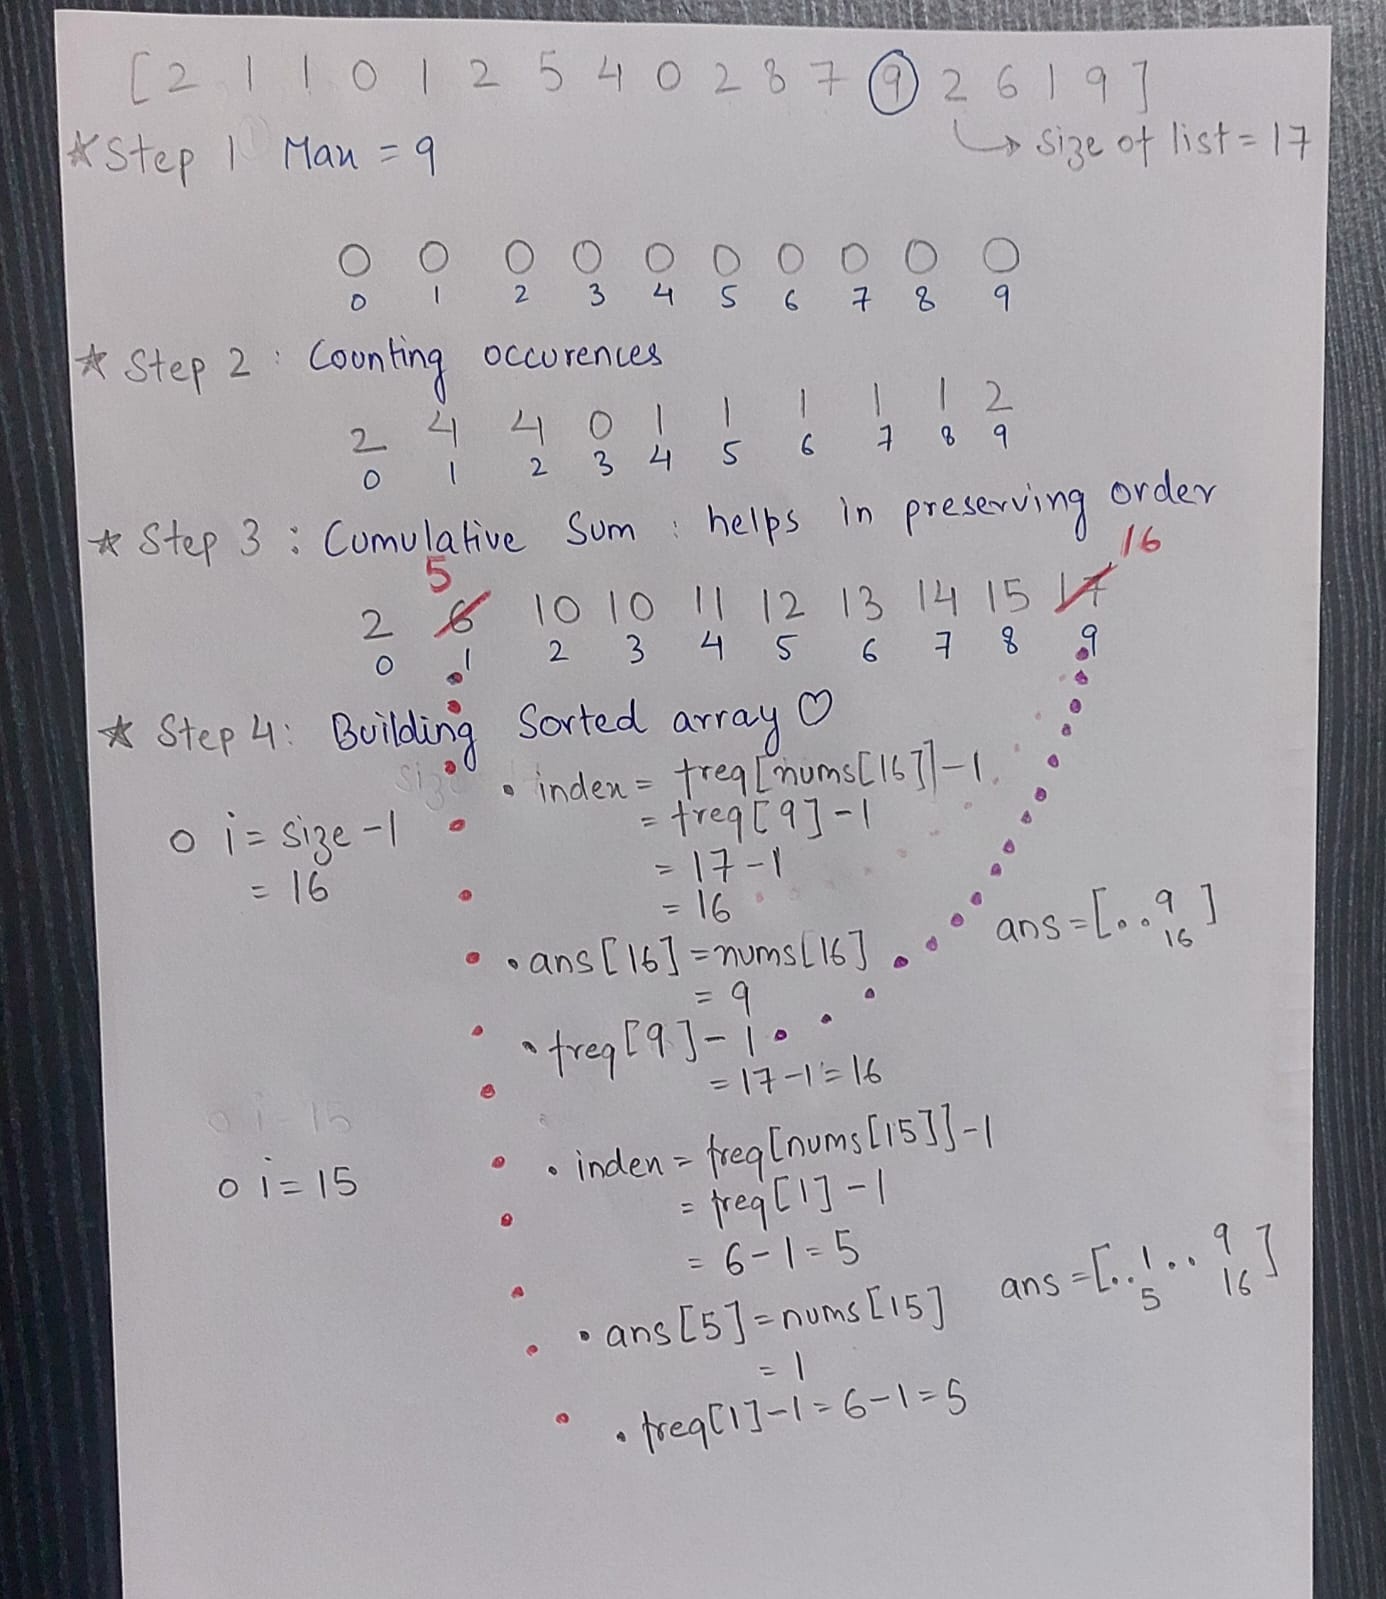 [2 1 1 0 1 2 5 4 0 2 8 7 9 2 6 1 9]
* Step 1 Max = 9
↳ size of list = 17
0 0 0 0 0 0 0 0 0 0
0 1 2 3 4 5 6 7 8 9
* Step 2 : Counting occurences
2 4 4 0 1 1 1 1 1 2
0 1 2 3 4 5 6 7 8 9
* Step 3 : Cumulative Sum : helps in preserving order
5 16
2 6 10 10 11 12 13 14 15 17
0 1 2 3 4 5 6 7 8 9
* Step 4 : Building Sorted array ♡
siz
• index = freq[nums[16]]-1
= freq[9]-1
o i = size -1
= 17-1
= 16
= 16
ans = [..9]
16
• ans[16] = nums[16]
= 9
• freq[9]-1
= 17-1 = 16
o i - 15
• index = freq[nums[15]]-1
o i = 15
= freq[1]-1
= 6-1 = 5
ans = [..1..9]
5 16
• ans[5] = nums[15]
= 1
• freq[1]-1 = 6-1 = 5